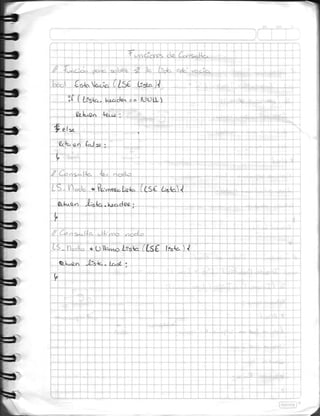 Funciones de Consulta
// Funcion para saber si la lista esta vacia
bool EstaVacia (LSE Lista){
if ( Lista.header == NULL )
Return true ;
}else
Return false ;
}
// Consulta 1er nodo
LS_Nodo * PrimeroLista (LSE Lista){
Return Lista.header ;
}
// Consulta ultimo nodo
LS_Nodo * UltimoLista (LSE lista){
Return Lista.last ;
}